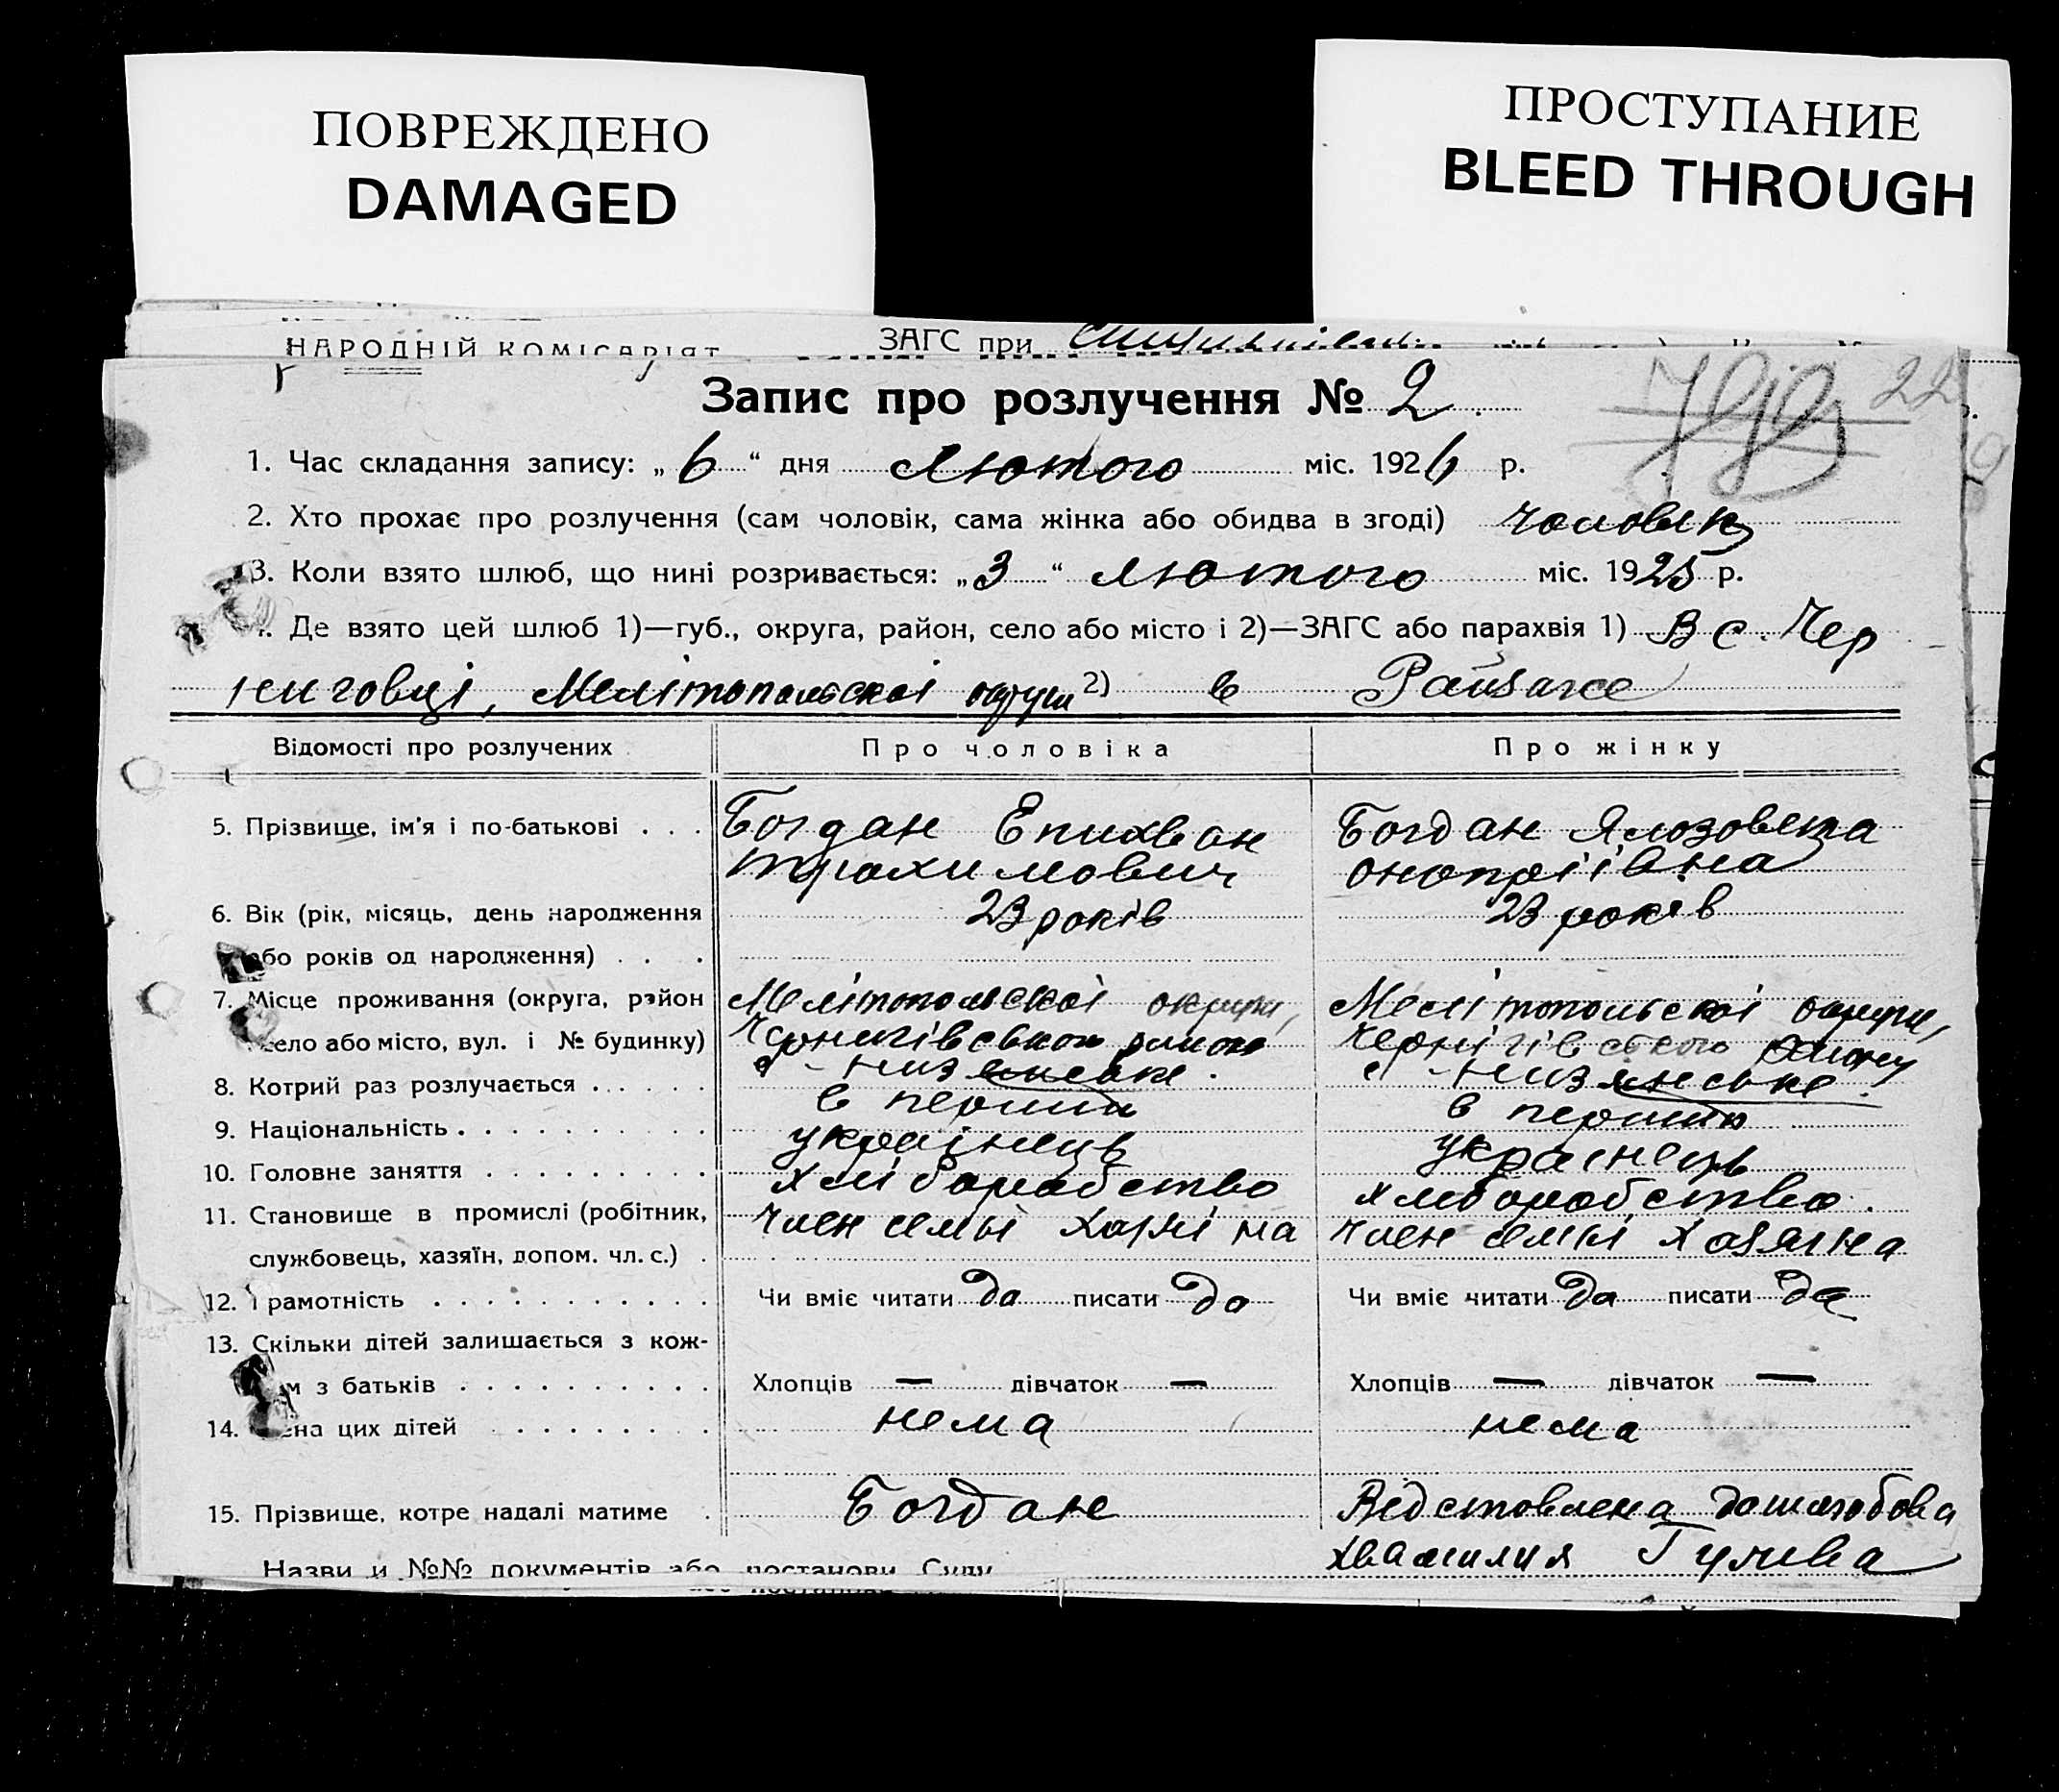 ПОВРЕЖДЕНО
DAMAGED
ПРОСТУПАНИЕ
BLEED THROUGH
НАРОДНІЙ КОМІСАРІЯТ
ЗАГС при
Запис про розлучення № 2
22
1. Час складання запису: „ 6 “ дня Лютого міс. 1926 р.
2. Хто прохає про розлучення (сам чоловік, сама жінка або обидва в згоді) чоловік
3. Коли взято шлюб, що нині розривається: „ 3 “ лютого міс. 1925 р.
Де взято цей шлюб 1)—губ., округа, район, село або місто і 2)—ЗАГС або парахвія 1) В с. Чер
ниговці, Мелітопольскоі округи 2) в Райзагсе
Відомості про розлучених Про чоловіка Про жінку
5. Прізвище, ім’я і по-батькові . . . Богдан Епихван Богдан Ялозовета
трахимович онопріівна
6. Вік (рік, місяць, день народження 23 років 23 років
або років од народження) . . .
7. Місце проживання (округа, район Мелітопольскоі округи, Мелітопольскоі округи,
село або місто, вул. і № будинку) Чернигівського району Чернігівського району
с - низянське. с - низянське.
8. Котрий раз розлучається . . . . . в перший в перший
9. Національність . . . . . . . . . . українець українець
10. Головне заняття . . . . . . . . . хліборобство хліборобство.
11. Становище в промислі (робітник, член семьі хазяіна член семьі хазяіна
службовець, хазяїн, допом. чл. с.) .
12. Грамотність . . . . . . . . . . . Чи вміє читати да писати да Чи вміє читати да писати да
13. Скільки дітей залишається з кож-
м з батьків . . . . . . . . . . Хлопців — дівчаток — Хлопців — дівчаток —
14. цих дітей . . . . . . . . нема нема
15. Прізвище, котре надалі матиме . Богдан Відстовлена дошлюбова
хвамилия
Назви и №№ документів або постанови Суду